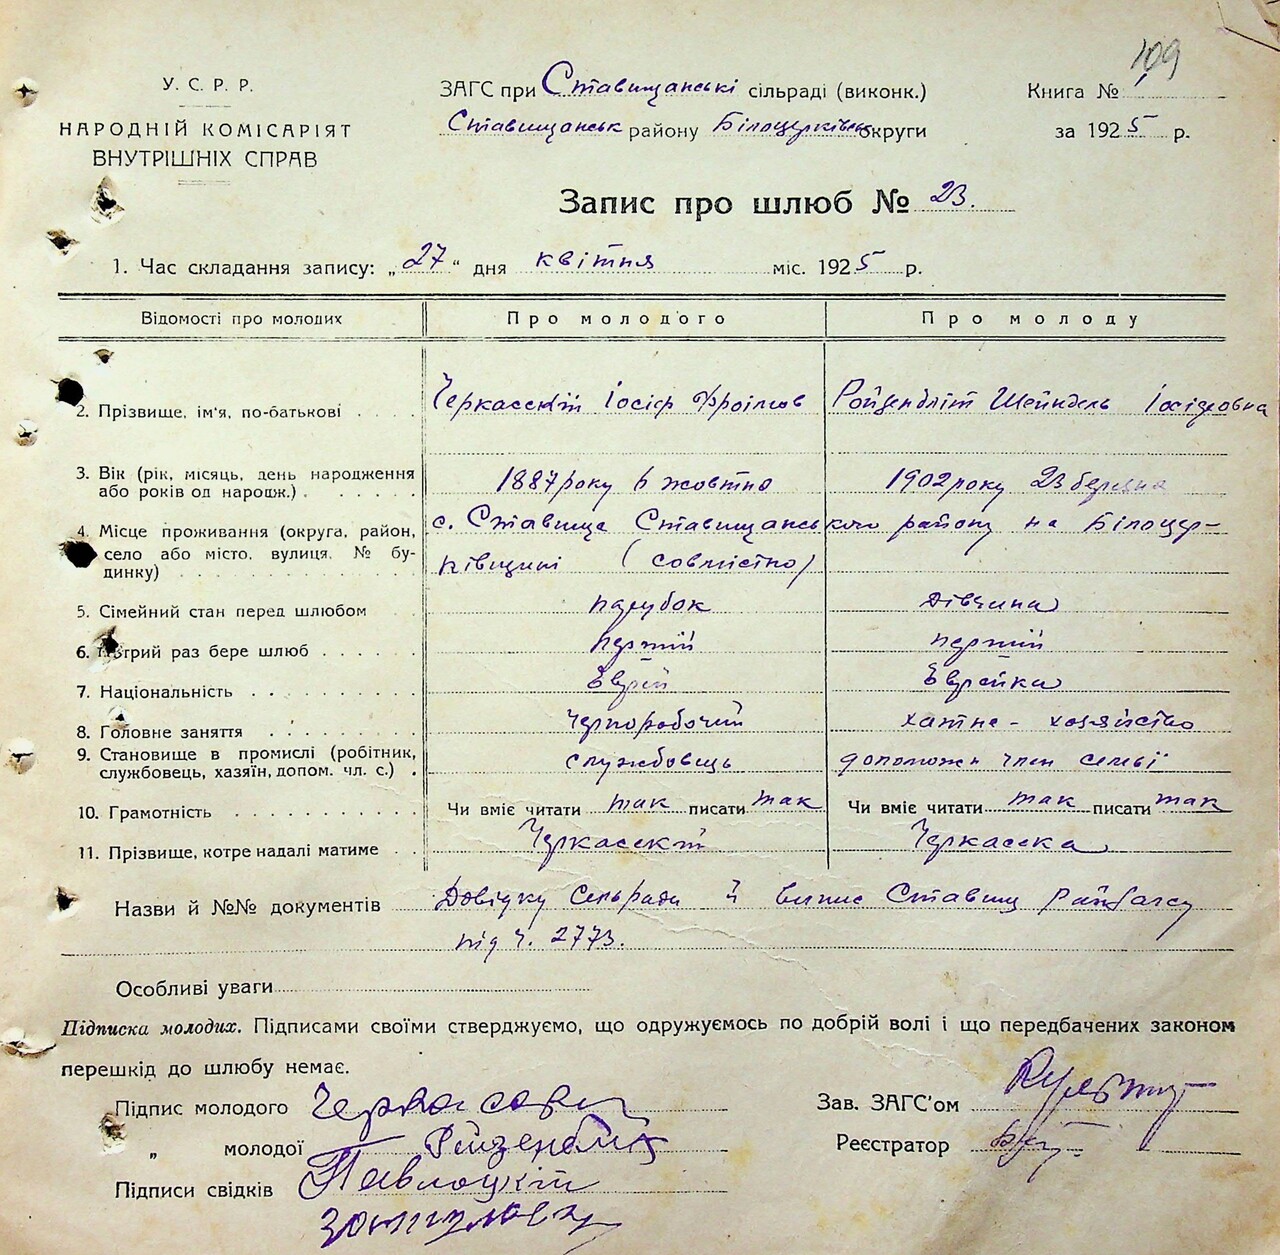 109
У. С. Р. Р.
НАРОДНІЙ КОМІСАРІЯТ
ВНУТРІШНІХ СПРАВ
ЗАГС при Ставищанські сільраді (виконк.)
Ставищанськ району Білоцерківськ округи
Книга №
за 1925 р.
Запис про шлюб № 23.
1. Час складання запису: „27" дня квітня міс. 1925 р.
Відомості про молодих Про молодого Про молоду
2. Прізвище, ім'я, по-батькові Черкасский Іосіф Фроімов Ройзенбліт Шейндель Іосіфовна
3. Вік (рік, місяць, день народження або років од народж.) 1887 року 6 жовтня 1902 року 23 березня
4. Місце проживання (округа, район, село або місто, вулиця, № будинку) с. Ставища Ставищанського району на Білоцер-
ківщині (совмістно)
5. Сімейний стан перед шлюбом парубок дівчина
6. Котрий раз бере шлюб перший перший
7. Національність Еврей Еврейка
8. Головне заняття Чернорабочий хатне-хозяйство
9. Становище в промислі (робітник, службовець, хазяїн, допом. чл. с.) службовець допомож член семьі
10. Грамотність Чи вміє читати так писати так Чи вміє читати так писати так
11. Прізвище, котре надалі матиме Черкасский Черкасска
Назви й №№ документів Довідку Сельради й випис Ставищ Райзагсу
під ч. 2773.
Особливі уваги
Підписка молодих. Підписами своїми стверджуємо, що одружуємось по добрій волі і що передбачених законом
перешкід до шлюбу немає.
Підпис молодого Черкасский
„ молодої Ройзенбліт
Підписи свідків Павлоцкій
Зав. ЗАГС'ом
Реєстратор